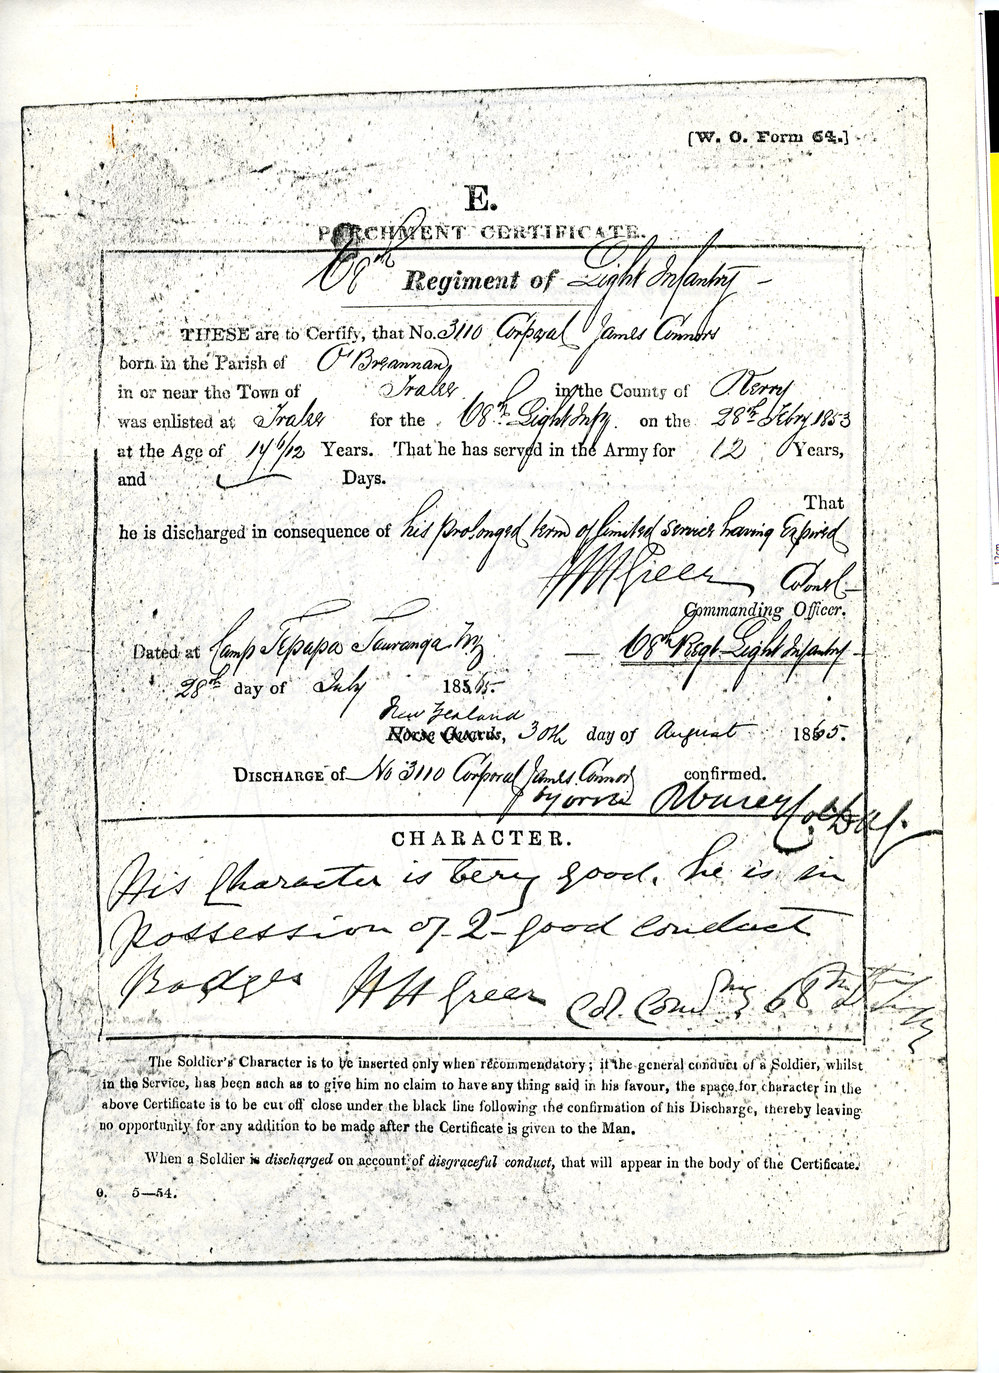 [W. O. Form 64.]
E.
PARCHMENT CERTIFICATE.
68th Regiment of Light Infantry -
THESE are to Certify, that No. 3110 Corporal James Connors
born in the Parish of O'Breannan,
in or near the Town of Tralee in the County of Kerry
was enlisted at Tralee for the 68th Light Infy. on the 28th Febry 1853
at the Age of 17 6/12 Years. That he has served in the Army for 12 Years,
and — Days.
That
he is discharged in consequence of his prolonged term of limited service having Expired
HH Greer Colonel -
Commanding Officer.
Dated at Camp Tepapa Tauranga NZ — 68th Regt. Light Infantry -
28th day of July 1865.
New Zealand
Horse Guards, 30th day of August 1865.
DISCHARGE of No 3110 Corporal James Connors confirmed.
by order Col.
CHARACTER.
His Character is very good. he is in
possession of 2 good conduct
Badges HH Greer Col. Comdng 68th
The Soldier's Character is to be inserted only when recommendatory; if the general conduct of a Soldier, whilst
in the Service, has been such as to give him no claim to have any thing said in his favour, the space for character in the
above Certificate is to be cut off close under the black line following the confirmation of his Discharge, thereby leaving
no opportunity for any addition to be made after the Certificate is given to the Man.
When a Soldier is discharged on account of disgraceful conduct, that will appear in the body of the Certificate.
O. 5—54.